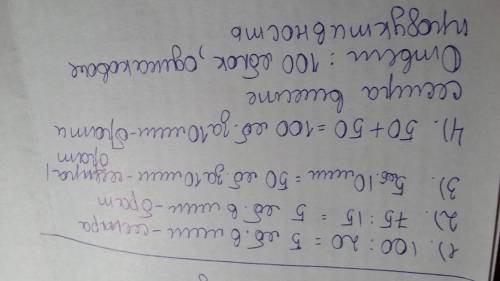 1). 100 : 20 = 5 яб. в мин - сестра
2). 75 : 15 = 5 яб. в мин - брат
3). 5яб. 10мин = 50 яб. за 10мин - сестра/
брат
4). 50 + 50 = 100 яб. за 10 мин - брат и
сестра вместе
Ответ: 100 яблок, одинаковая
продуктивность